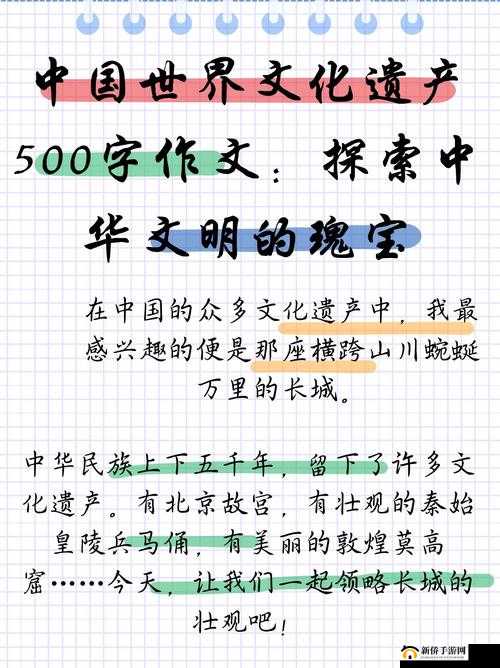 中国世界文化遗产
500字作文：探索中
华文明的瑰宝
在中国的众多文化遗产中，我最
感兴趣的便是那座横跨山川蜿蜒
万里的长城。
中华民族上下五千年，留下了许多文
化遗产。有北京故宫，有壮观的秦始
皇陵兵马俑，有美丽的敦煌莫高
窟……今天，让我们一起领略长城的
壮观吧！
新侨手游网